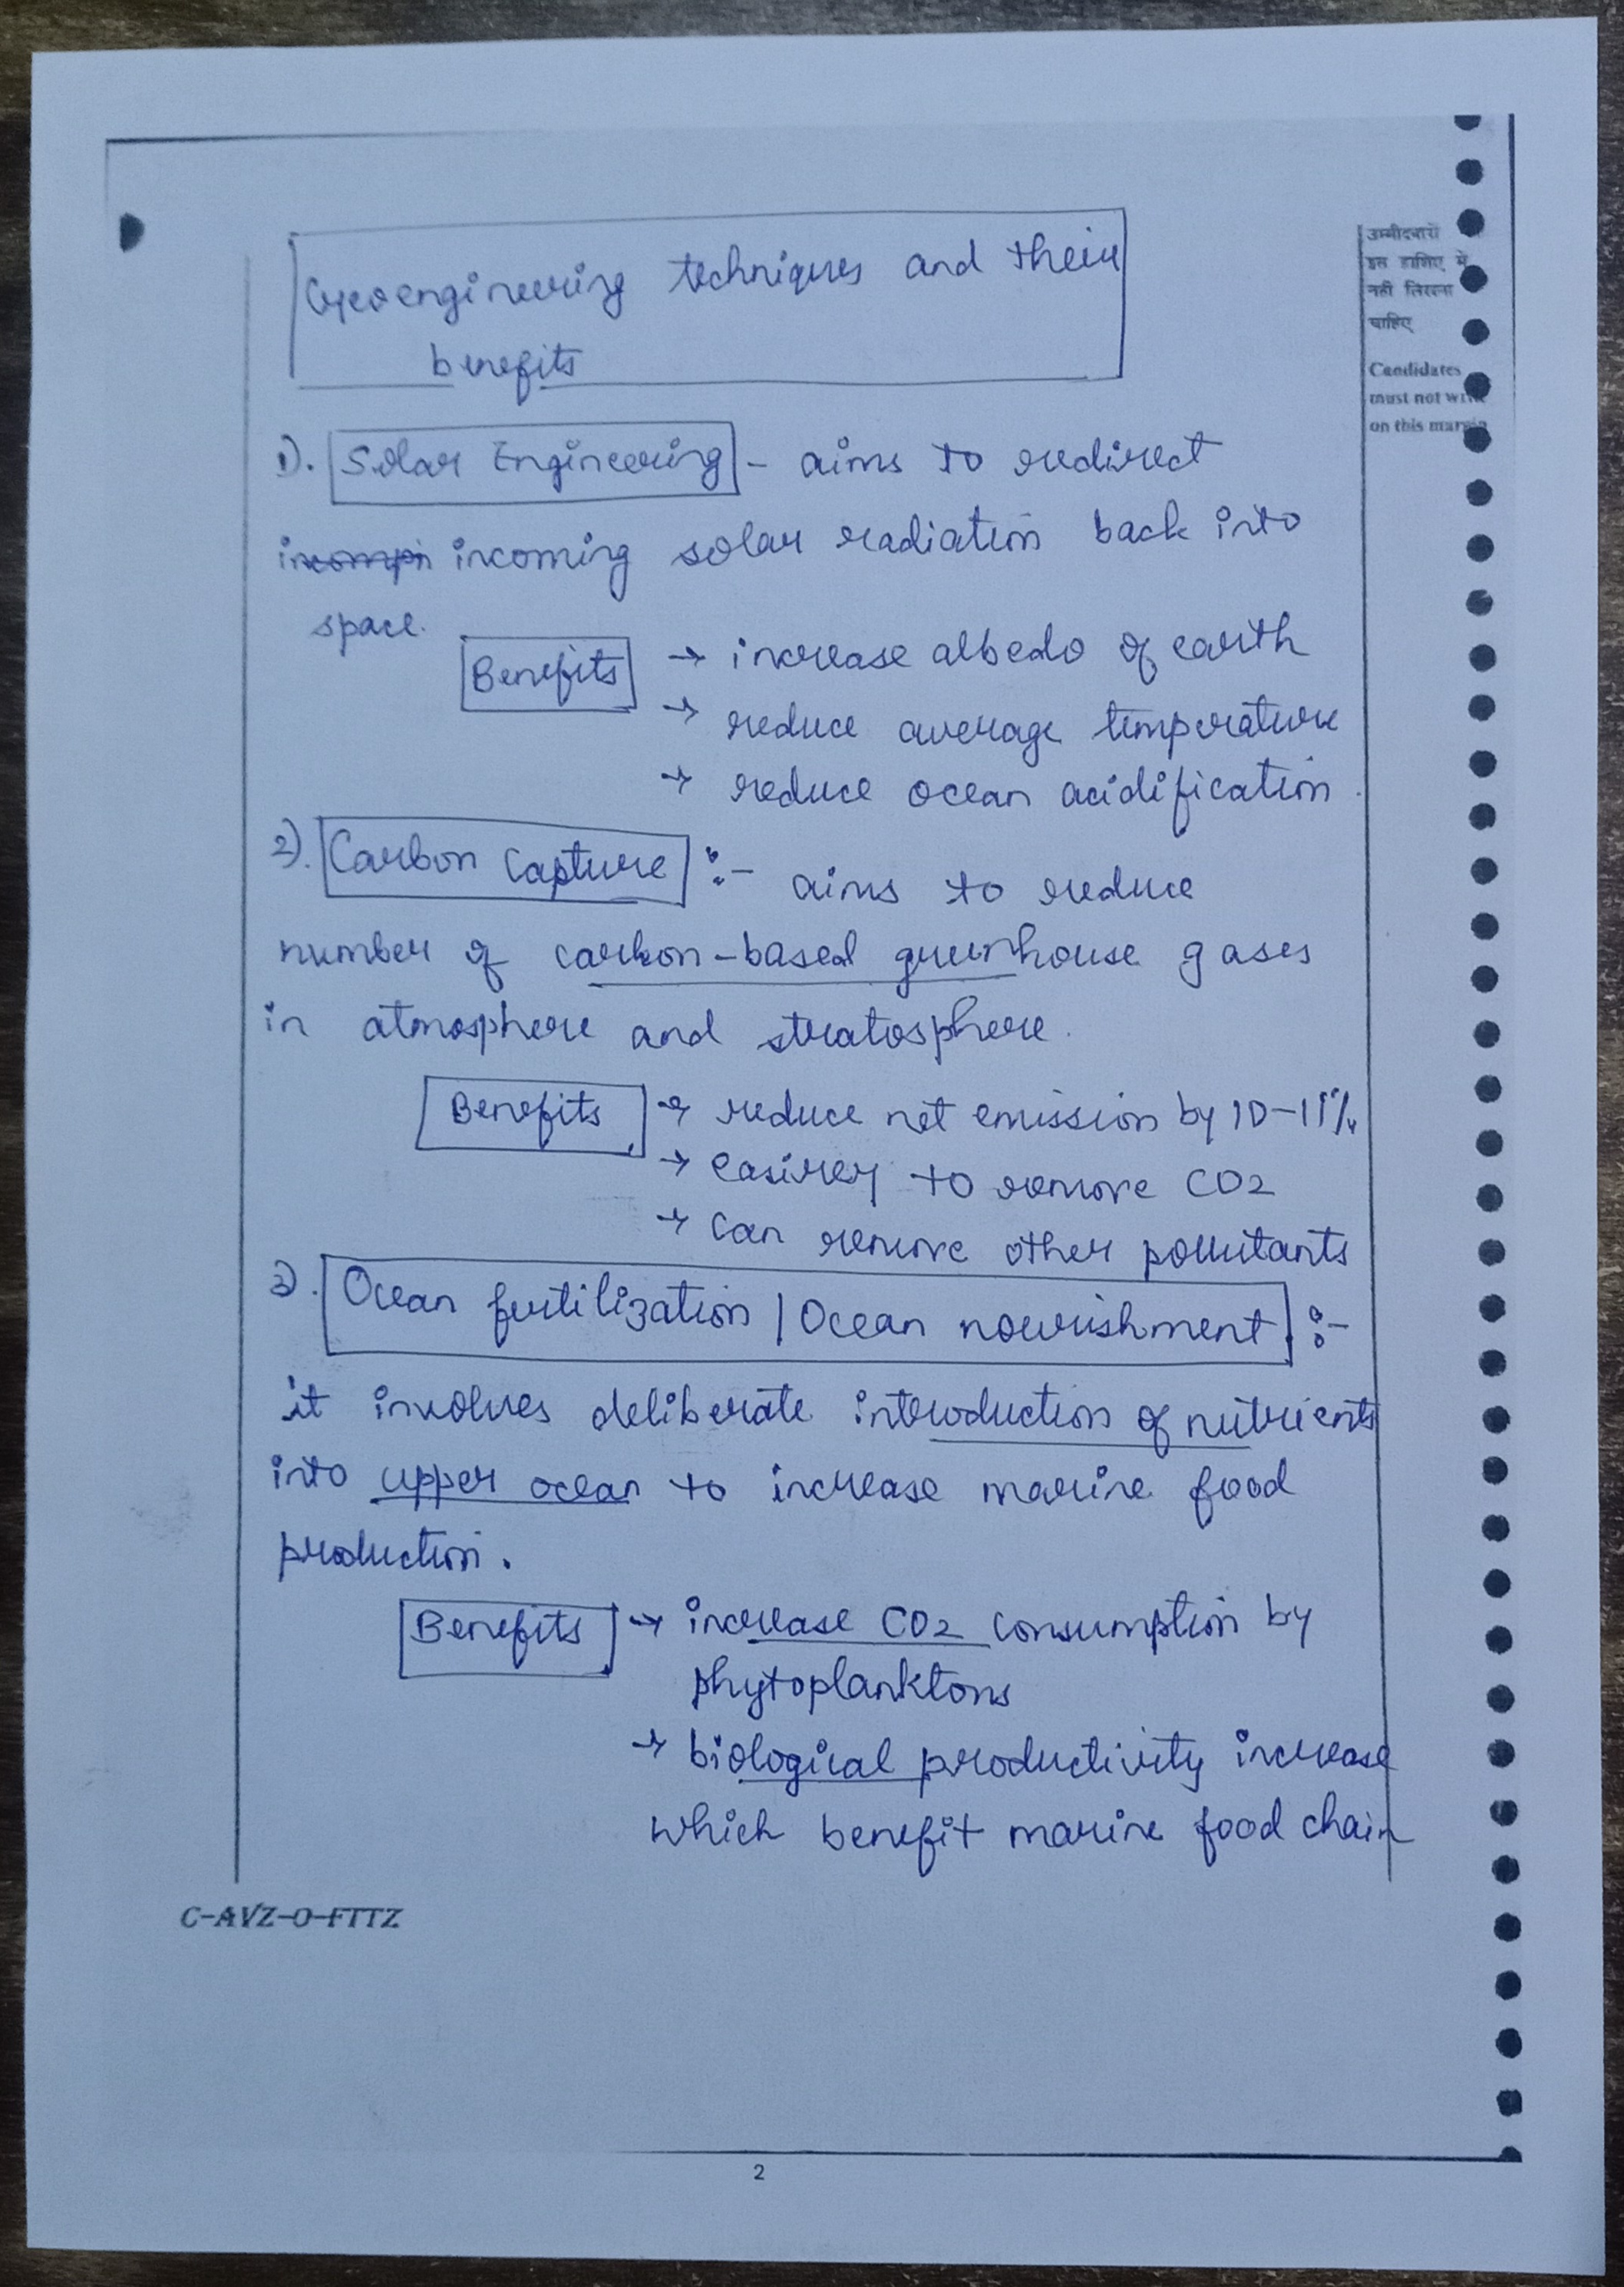 Geoengineering techniques and their
benefits
1). Solar Engineering - aims to redirect
incoming solar radiation back into
space.
Benefits → increase albedo of earth
→ reduce average temperature
→ reduce ocean acidification.
2). Carbon Capture :- aims to reduce
number of carbon-based greenhouse gases
in atmosphere and stratosphere.
Benefits → reduce net emission by 10-11%
→ easirer to remove CO2
→ can remove other pollutants
3). Ocean fertilization / Ocean nourishment :-
it involves deliberate introduction of nutrients
into upper ocean to increase marine food
production.
Benefits → increase CO2 consumption by
phytoplanktons
→ biological productivity increase
which benefit marine food chain
उम्मीदवारों
इस हाशिए में
नहीं लिखना
चाहिए
Candidates
must not write
on this margin
C-AVZ-O-FTTZ
2